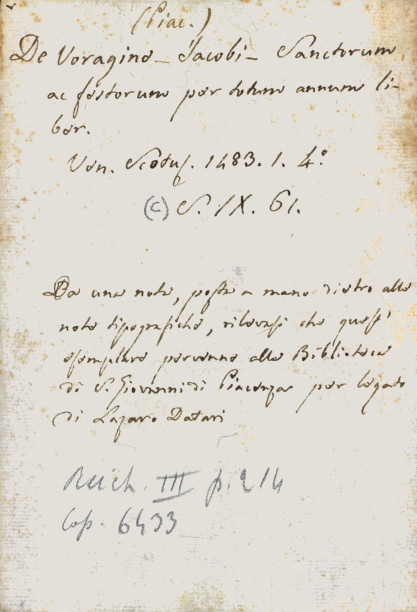 (Piac.)
De Voragine - Jacobi - Sanctorum
ac festorum per totum annum li-
ber.
Ven. Scotus. 1483. 1. 4°
(C) S. IX. 61.
Da una nota, posta a mano dietro alle
note tipografiche, rilevasi che quest'
esemplare pervenne alla Biblioteca
di S. Giovanni di Piacenza per legato
di Lazaro Datari
Reich. III p. 214
Cop. 6433